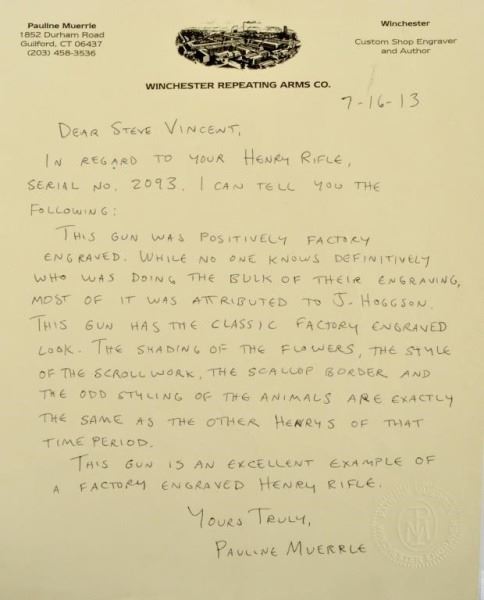 Pauline Muerrle
1852 Durham Road
Guilford, CT 06437
(203) 458-3536
Winchester
Custom Shop Engraver
and Author
WINCHESTER REPEATING ARMS CO.
7-16-13
DEAR STEVE VINCENT,
IN REGARD TO YOUR HENRY RIFLE,
SERIAL NO. 2093. I CAN TELL YOU THE
FOLLOWING:
THIS GUN WAS POSITIVELY FACTORY
ENGRAVED. WHILE NO ONE KNOWS DEFINITIVELY
WHO WAS DOING THE BULK OF THEIR ENGRAVING,
MOST OF IT WAS ATTRIBUTED TO J. HOGGSON.
THIS GUN HAS THE CLASSIC FACTORY ENGRAVED
LOOK. THE SHADING OF THE FLOWERS, THE STYLE
OF THE SCROLLWORK, THE SCALLOP BORDER AND
THE ODD STYLING OF THE ANIMALS ARE EXACTLY
THE SAME AS THE OTHER HENRYS OF THAT
TIME PERIOD.
THIS GUN IS AN EXCELLENT EXAMPLE OF
A FACTORY ENGRAVED HENRY RIFLE.
YOURS TRULY,
PAULINE MUERRLE